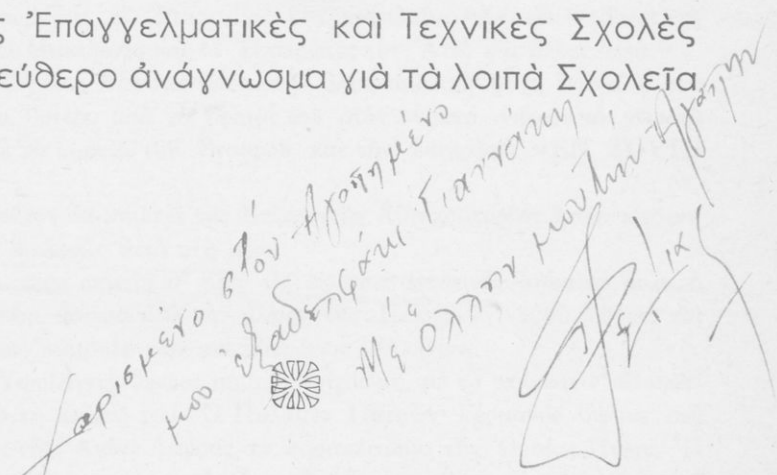 ς Ἐπαγγελματικὲς καὶ Τεχνικὲς Σχολὲς
εύθερο ἀνάγνωσμα γιὰ τὰ λοιπὰ Σχολεῖα
χαρισμενο στον Αγαπημένο
μου εξαδερφάκι Γιαννάκη
Μέ ολλην μου την Αγάπην